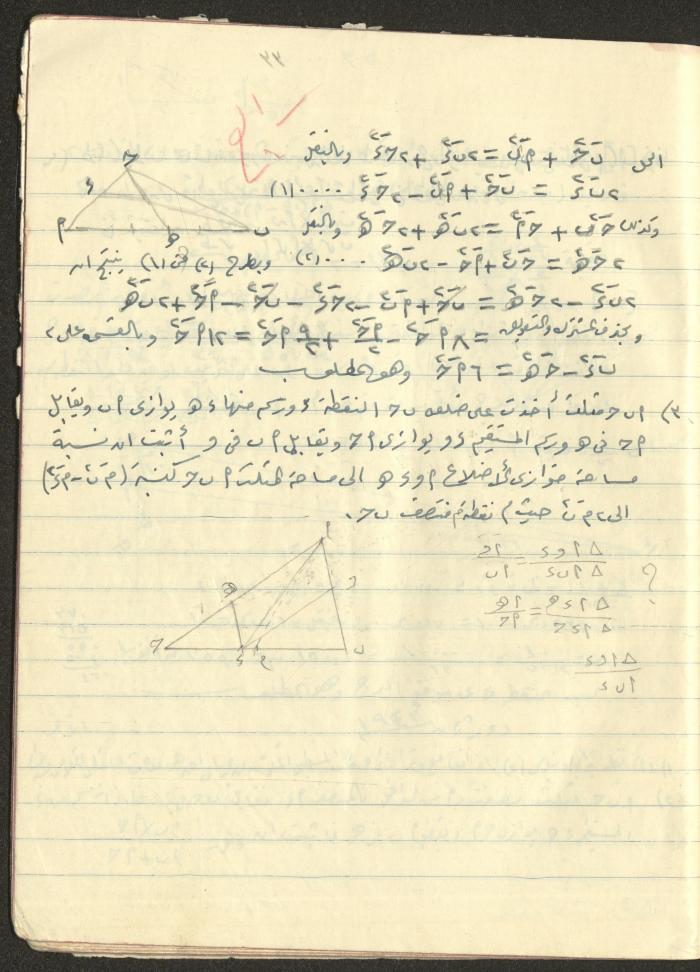 ٣٣
الى ب ح² + ا ب² = ٢ ب د² + ٢ ح د² وبالنقل
٢ ب د² = ب ح² + ا ب² - ٢ ح د² .... (١)
وكذلك ح ب² + ح ا² = ٢ ب ه² + ٢ ح ه² وبالنقل
٢ ح ه² = ح ب² + ا ح² - ٢ ب ه² ... (٢) وبطرح (٢) من (١) ينتج ان
٢ ب د² - ٢ ح ه² = ب ح² + ا ب² - ٢ ح د² - ب ح² - ا ح² + ٢ ب ه²
وبحذف المشترك والتعويض = ٨ ا ح² - ا ح²/٢ + ٩/٢ ا ح² = ١٢ ا ح² وبالقسمة على ٢
ب د² - ح ه² = ٦ ا ح² وهو المطلوب
٣) ا ب ح مثلث أخذت على ضلعه ب ح النقطة د ورسم منها د ه يوازى ا ب ويقابل
ا ح فى ه ورسم المستقيم د و يوازى ا ح ويقابل ا ب فى و أثبت ان نسبة
مساحة متوازى الأضلاع ا و د ه الى مساحة المثلث ا ب ح كنسبة (م ب² - م د²)
الى ٢ م ب² حيث م نقطة منتصف ب ح .
△ ا و د / △ ا ب د = ا و / ا ب
؟
△ ا د ه / △ ا د ح = ا ه / ا ح
△ ا و د / ا ب د